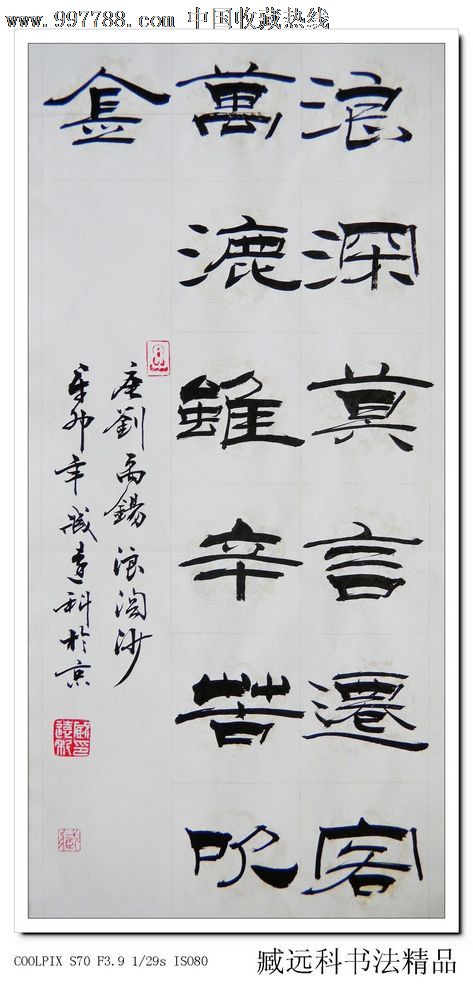 www.997788.com 中国收藏热线
浪深莫言遷客
萬漉雖辛苦吹
金
唐劉禹錫浪淘沙
辛卯年臧遠科於京
COOLPIX S70 F3.9 1/29s ISO80
臧远科书法精品